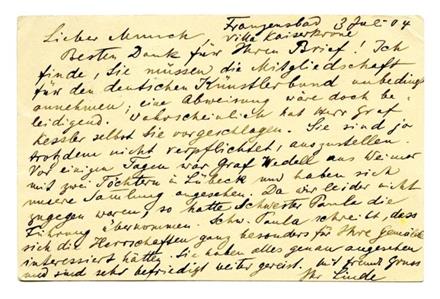 Franzensbad 3 Juli 04
Villa Kaiserkrone
Lieber Munch,
Besten Dank für Ihren Brief! Ich
finde, Sie müssen die Mitgliedschaft
für den deutschen Künstlerbund unbedingt
annehmen; eine Abweisung wäre doch be-
leidigend. Wahrscheinlich hat Herr Graf
Kessler selbst Sie vorgeschlagen. Sie sind ja
trotzdem nicht verpflichtet, auszustellen.
Vor einigen Tagen war Graf Wedell aus Weimar
mit zwei Töchtern in Lübeck und haben sich
unsere Samlung angesehen. Da wir leider nicht
zugegen waren, so hatte Schwester Paula die
Führung übernommen. Schw. Paula schreibt, dass
sich die Herrschaften ganz besonders für Ihre Gemälde
interessiert hätten. Sie haben alles genau angesehen
und sind sehr befriedigt weiter gereist. Mit freundl Gruss
Ihr Linde